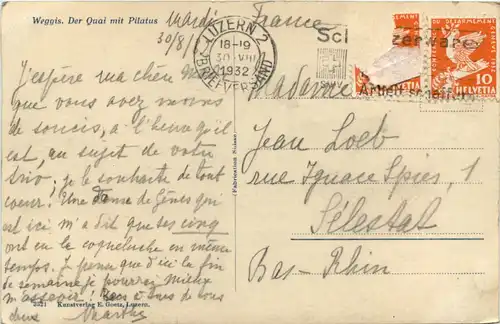 Weggis. Der Quai mit Pilatus
Mardi
30/8/
France
LUZERN 2
18-19
30.VIII
1932
BRIEFVERSAND
Sci zerware
Arbeit schaffen
DU DÉSARMEMENT
10
HELVETIA
J'espère ma chère
que vous avez moins
de soucis, à l'heure qu'il
est, au sujet de votre
trio, je le souhaite de tout
coeur! Une Dame de Gênes qui
est ici m'a dit que ses cinq
ont eu la coqueluche en même
temps. Je pense que d'ici la fin
de semaine je pourrai mieux
m'asseoir! à vous de vous
deux Marthe
Madame
Jean Loeb
rue Ignace Spies, 1
Sélestat
Bas-Rhin
(Fabrication Suisse)
2021 Kunstverlag E. Goetz, Luzern.